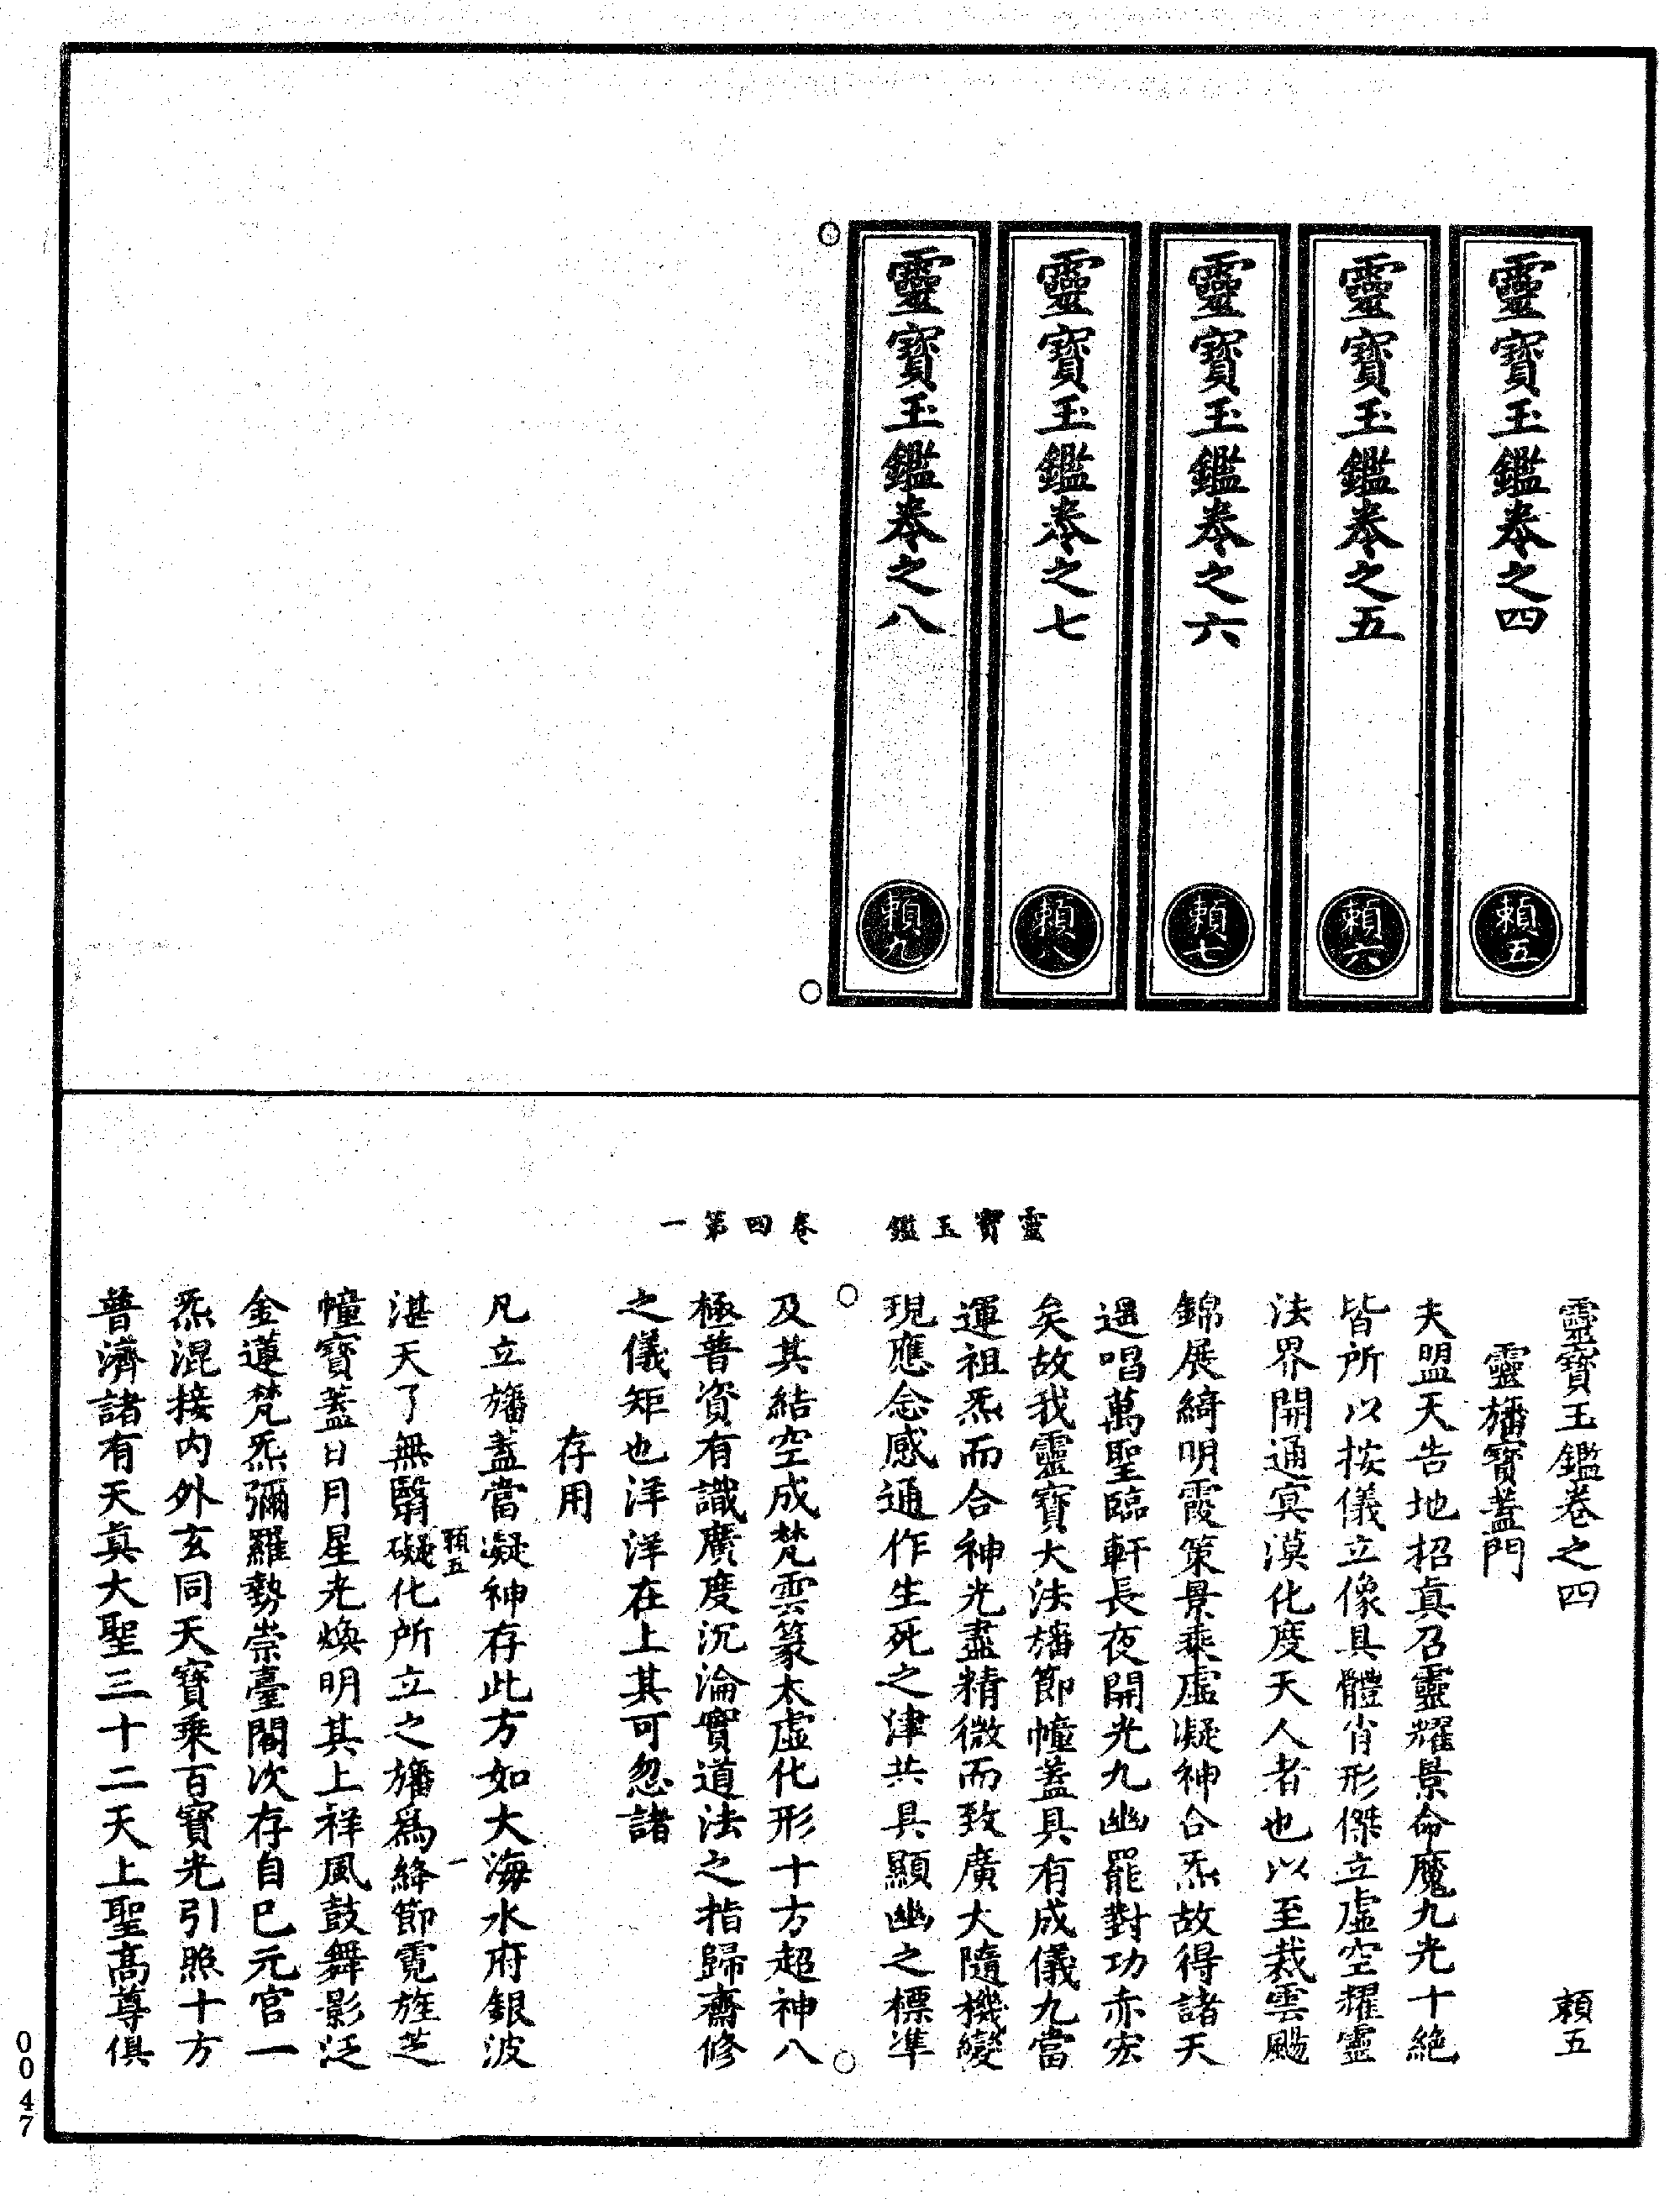 靈寶玉鑑卷之四
頼五
靈寶玉鑑卷之五
頼六
靈寶玉鑑卷之六
頼七
靈寶玉鑑卷之七
頼八
靈寶玉鑑卷之八
頼九
靈寶玉鑑 卷四第一
靈寶玉鑑卷之四 頼五
靈旛寶蓋門
夫盟天告地招眞召靈耀景命魔九光十絶
皆所以按儀立像具體肖形傑立虛空耀靈
法界開通㝠漠化度天人者也以至裁雲颺
錦展綺明霞策景乘虛凝神合炁故得諸天
遏唱萬聖臨軒長夜開光九幽罷對功亦宏
矣故我靈寶大法旛節幢蓋具有成儀九當
運祖炁而合神光盡精微而致廣大隨機變
現應念感通作生死之津共具顯幽之標準
及其結空成梵雲篆太虛化形十方超神八
極普資有識廣度沉淪實道法之指歸齋修
之儀矩也洋洋在上其可忽諸
存用
凡立旛蓋當凝神存此方如大海水府銀波
湛天了無翳礙化所立之旛爲絳節霓旌芝
頼五 一
幢寶蓋日月星光煥明其上祥風鼓舞影泛
金蓮梵炁彌羅勢崇臺閣次存自巳元宫一
炁混接内外玄同天寶乘百寶光引照十方
普濟諸有天真大聖三十二天上聖髙尊俱
0047